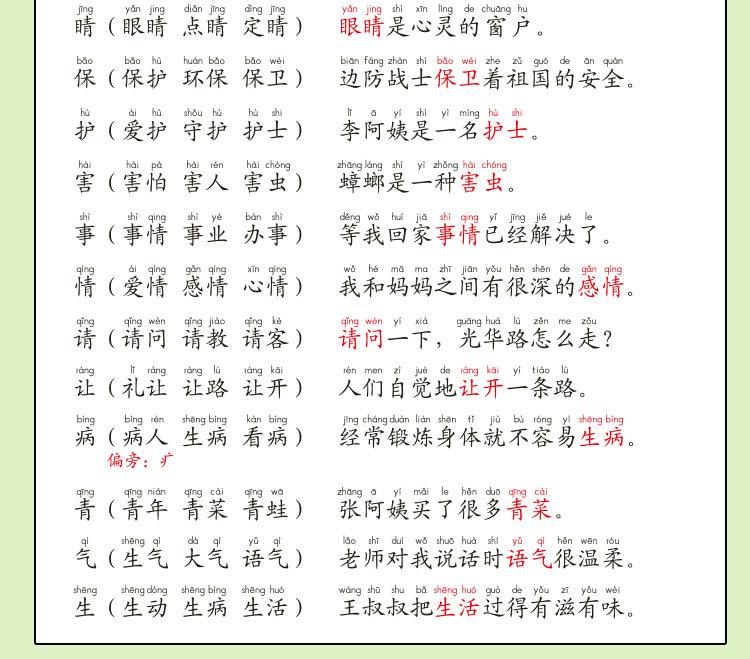 jīng yǎn jing diǎn jīng dìng jīng yǎn jing shì xīn líng de chuāng hu
睛（眼睛 点睛 定睛） 眼睛是心灵的窗户。
bǎo bǎo hù huán bǎo bǎo wèi biān fáng zhàn shì bǎo wèi zhe zǔ guó de ān quán
保（保护 环保 保卫） 边防战士保卫着祖国的安全。
hù ài hù shǒu hù hù shi lǐ ā yí shì yì míng hù shi
护（爱护 守护 护士） 李阿姨是一名护士。
hài hài pà hài rén hài chóng zhāng láng shì yì zhǒng hài chóng
害（害怕 害人 害虫） 蟑螂是一种害虫。
shì shì qing shì yè bàn shì děng wǒ huí jiā shì qing yǐ jīng jiě jué le
事（事情 事业 办事） 等我回家事情已经解决了。
qíng ài qíng gǎn qíng xīn qíng wǒ hé mā ma zhī jiān yǒu hěn shēn de gǎn qíng
情（爱情 感情 心情） 我和妈妈之间有很深的感情。
qǐng qǐng wèn qǐng jiào qǐng kè qǐng wèn yí xià guāng huá lù zěn me zǒu
请（请问 请教 请客） 请问一下，光华路怎么走？
ràng lǐ ràng ràng lù ràng kāi rén men zì jué de ràng kāi yì tiáo lù
让（礼让 让路 让开） 人们自觉地让开一条路。
bìng bìng rén shēng bìng kàn bìng jīng cháng duàn liàn shēn tǐ jiù bù róng yì shēng bìng
病（病人 生病 看病） 经常锻炼身体就不容易生病。
偏旁：疒
qīng qīng nián qīng cài qīng wā zhāng ā yí mǎi le hěn duō qīng cài
青（青年 青菜 青蛙） 张阿姨买了很多青菜。
qì shēng qì dà qì yǔ qì lǎo shī duì wǒ shuō huà shí yǔ qì hěn wēn róu
气（生气 大气 语气） 老师对我说话时语气很温柔。
shēng shēng dòng shēng bìng shēng huó wáng shū shu bǎ shēng huó guò de yǒu zī yǒu wèi
生（生动 生病 生活） 王叔叔把生活过得有滋有味。